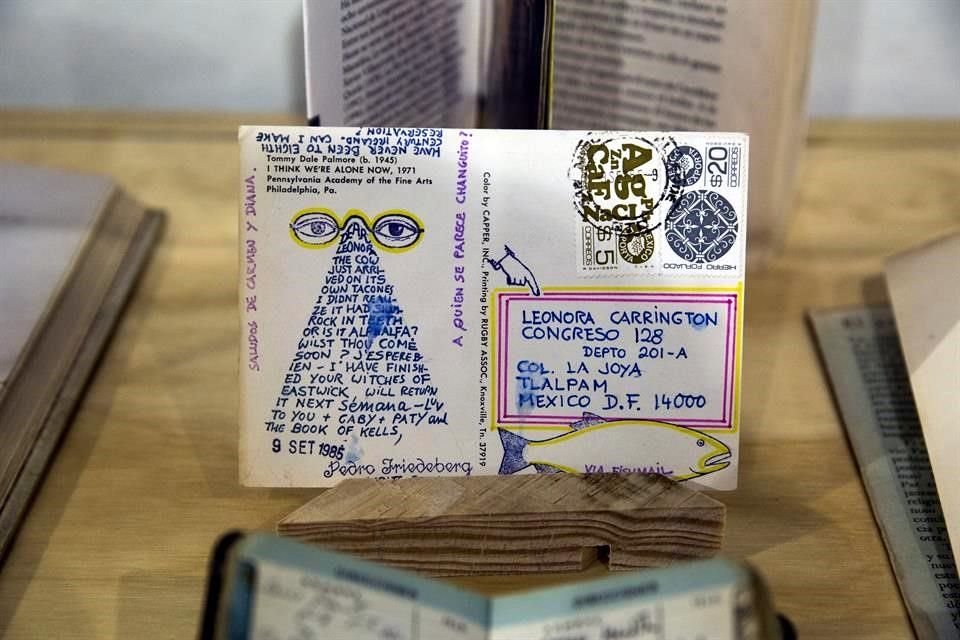 HAVE NEVER BEEN TO EIGHTH
CENTURY IRELAND. CAN I MAKE
RESERVATION ?
Tommy Dale Palmore (b. 1945)
I THINK WE'RE ALONE NOW, 1971
Pennsylvania Academy of the Fine Arts
Philadelphia, Pa.
SALUDOS DE CARMEN Y DIANA.
DEAR
LEONOR
THE COW
JUST ARRI-
VED ON ITS
OWN TACONES
I DIDNT REALI
ZE IT HAD
ROCK IN TEETH
OR IS IT ALFALFA?
WILST THOU COME
SOON ? J'ESPERE B
IEN - I HAVE FINISH-
ED YOUR WITCHES OF
EASTWICK, WILL RETURN
IT NEXT SEMANA - LUV
TO YOU + GABY + PATY and
THE BOOK OF KELLS,
9 SET 1985
Pedro Friedeberg
A QUIEN SE PARECE CHANGUITO?
Color by CAPPER, INC., Printing by RUGBY ASSOC., Knoxville, Tn. 37919
Ag
Zn
CaF
NaCl
$5
CORREOS
MEXICO
$20
CORREOS
HIERRO FORJADO
LEONORA CARRINGTON
CONGRESO 128
DEPTO 201-A
COL. LA JOYA
TLALPAM
MEXICO D.F. 14000
VIA FISHMAIL